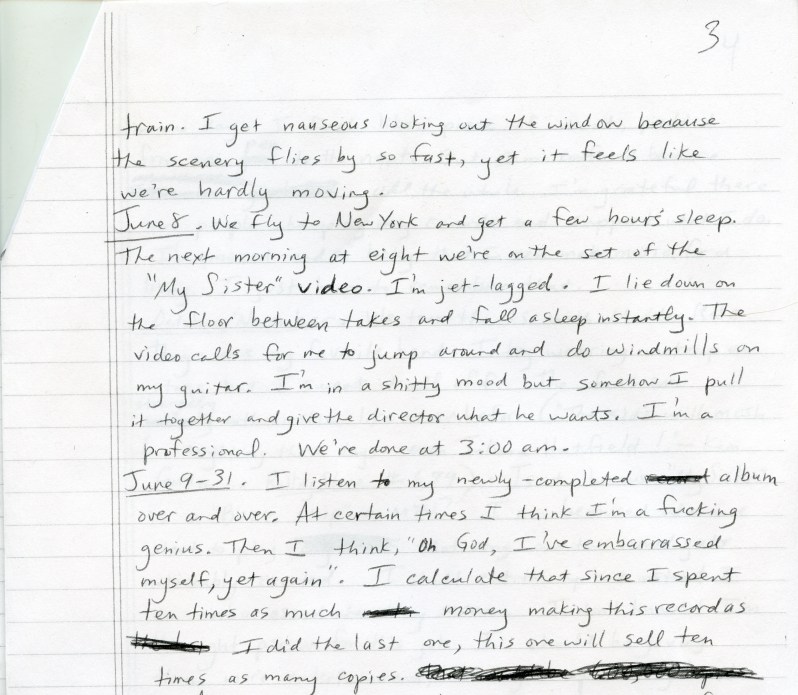 3
train. I get nauseous looking out the window because
the scenery flies by so fast, yet it feels like
we're hardly moving.
June 8. We fly to New York and get a few hours' sleep.
The next morning at eight we're on the set of the
"My Sister" video. I'm jet-lagged. I lie down on
the floor between takes and fall asleep instantly. The
video calls for me to jump around and do windmills on
my guitar. I'm in a shitty mood but somehow I pull
it together and give the director what he wants. I'm a
professional. We're done at 3:00 am.
June 9-31. I listen to my newly-completed album
over and over. At certain times I think I'm a fucking
genius. Then I think, "Oh God, I've embarrassed
myself, yet again". I calculate that since I spent
ten times as much money making this record as
I did the last one, this one will sell ten
times as many copies.